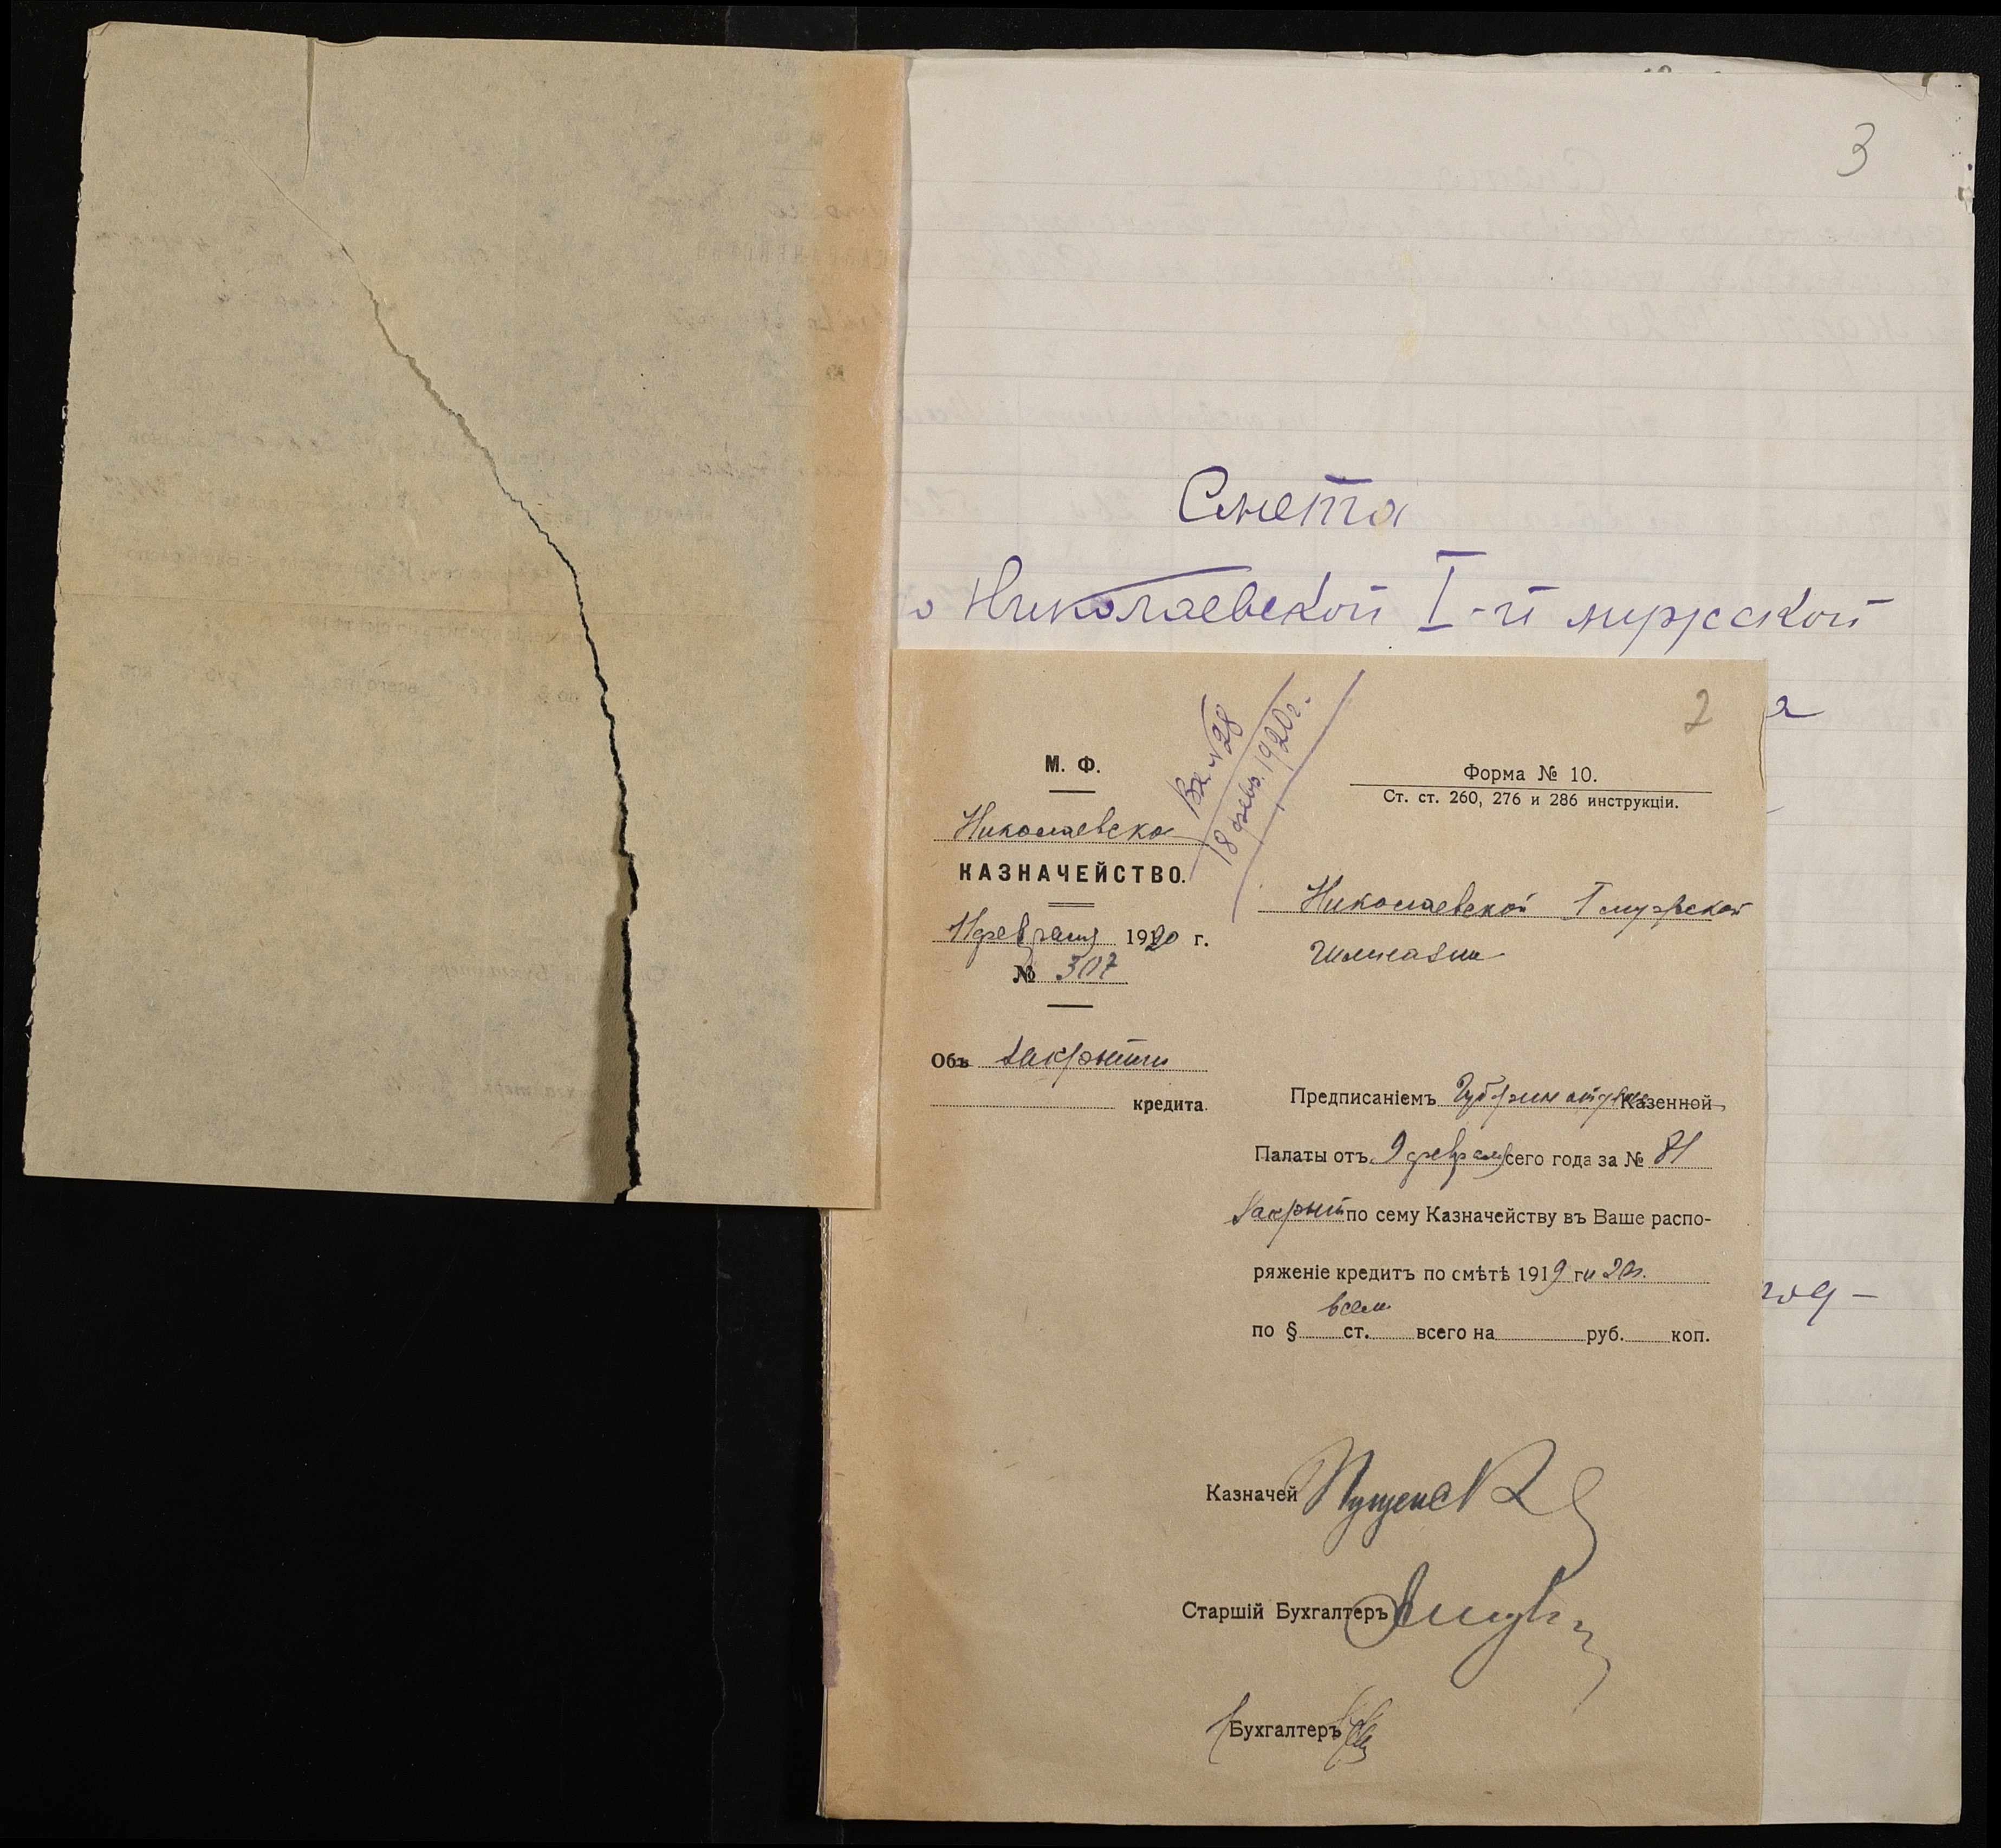 3
Смета
Николаевской I-й мужской
2
Вх. №28
18 февр. 1920 г.
М. Ф.
Николаевско
КАЗНАЧЕЙСТВО.
11 февраля 1920 г.
№ 307
Объ закрытии
кредита.
Форма № 10.
Ст. ст. 260, 276 и 286 инструкціи.
Николаевской I мужской
Гимназии
Предписаніемъ Казенной
Палаты отъ 9 февраля сего года за № 81
закрыт по сему Казначейству въ Ваше распо-
ряженіе кредитъ по смѣтѣ 1919 г и 20г.
всем
по § ст. всего на руб. коп.
Казначей
Старшій Бухгалтеръ
Бухгалтеръ
год –